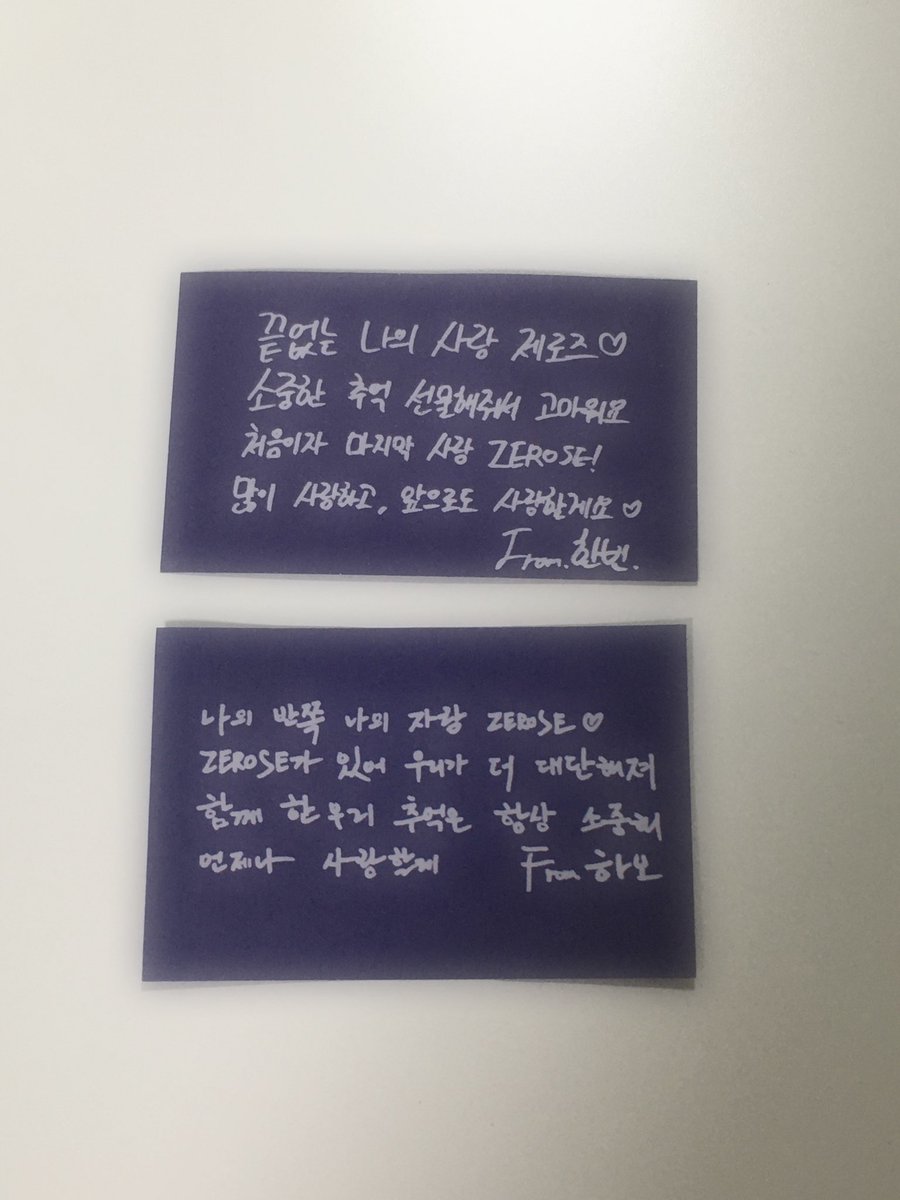 끝없는 나의 사랑 제로즈♡
소중한 추억 선물해줘서 고마워요
처음이자 마지막 사랑 ZEROSE!
많이 사랑하고, 앞으로도 사랑할게요♡
From.한빈.
나의 반쪽 나의 자랑 ZEROSE♡
ZEROSE가 있어 우리가 더 대단해져
함께 한 우리 추억은 항상 소중해
언제나 사랑할게 From 하오